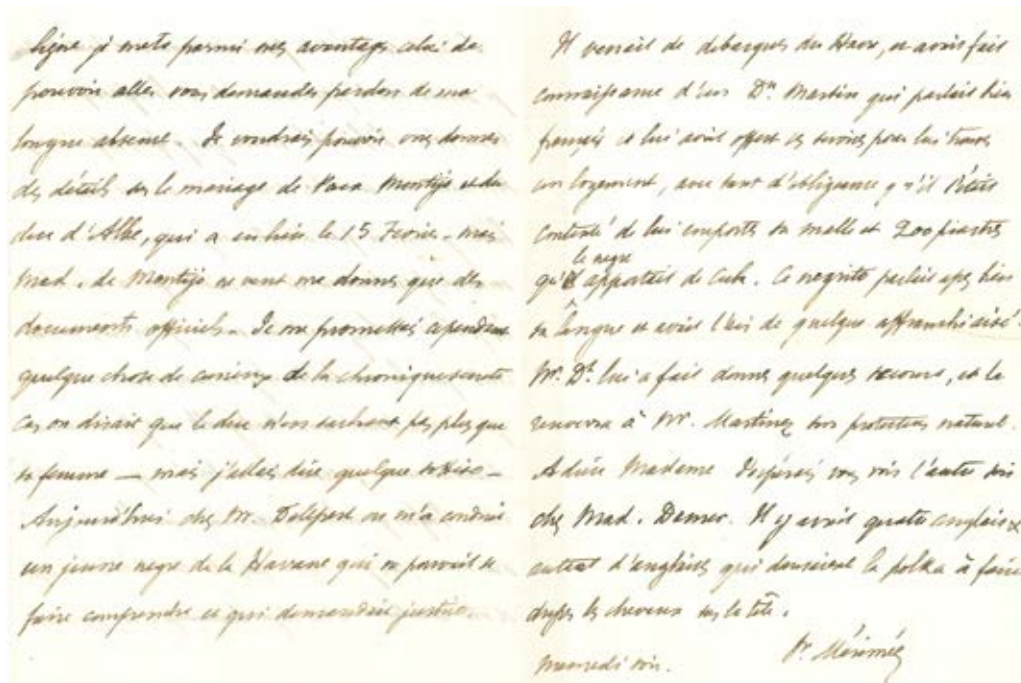 ligne je mets parmi mes avantages celui de
pouvoir aller vous demander pardon de ma
longue absence. Je voudrais pouvoir vous donner
des détails sur le mariage de Paca Montijo et du
duc d'Albe, qui a eu lieu le 15 Fevrier. mais
Mad. de Montijo ne veut me donner que des
documents officiels. Je me promettais cependant
quelque chose de curieux de la chronique secrete
car on disait que le duc n'en sachant pas plus que
sa femme — mais j'allais dire quelque sottise —
Aujourd'hui chez Mr. Delessert on m'a conduit
un jeune negre de la Havane qui ne pouvait se
faire comprendre et qui demandait justice.
Il venait de debarquer du Havre, et avait fait
connaissance d'un Dn. Martinez qui parlait bien
français et lui avait offert ses services pour lui trouver
un logement, avec tant d'obligeance qu'il s'était
contenté de lui emporter sa malle et 200 piastres
le negre
qu' apportait de Cuba. Ce negrito parlait assez bien
sa langue et avait l'air de quelque affranchi aisé.
Mr. Dt. lui a fait donner quelques secours, et le
renverra à Mr. Martinez son protecteur naturel.
Adieu Madame J'esperais vous voir l'autre soir
chez Mad. Demer. Il y avait quatre anglais et
autant d'anglaises qui dansaient la polka à faire
dresser les cheveux sur la tête.
Pr Mérimée
mercredi soir.